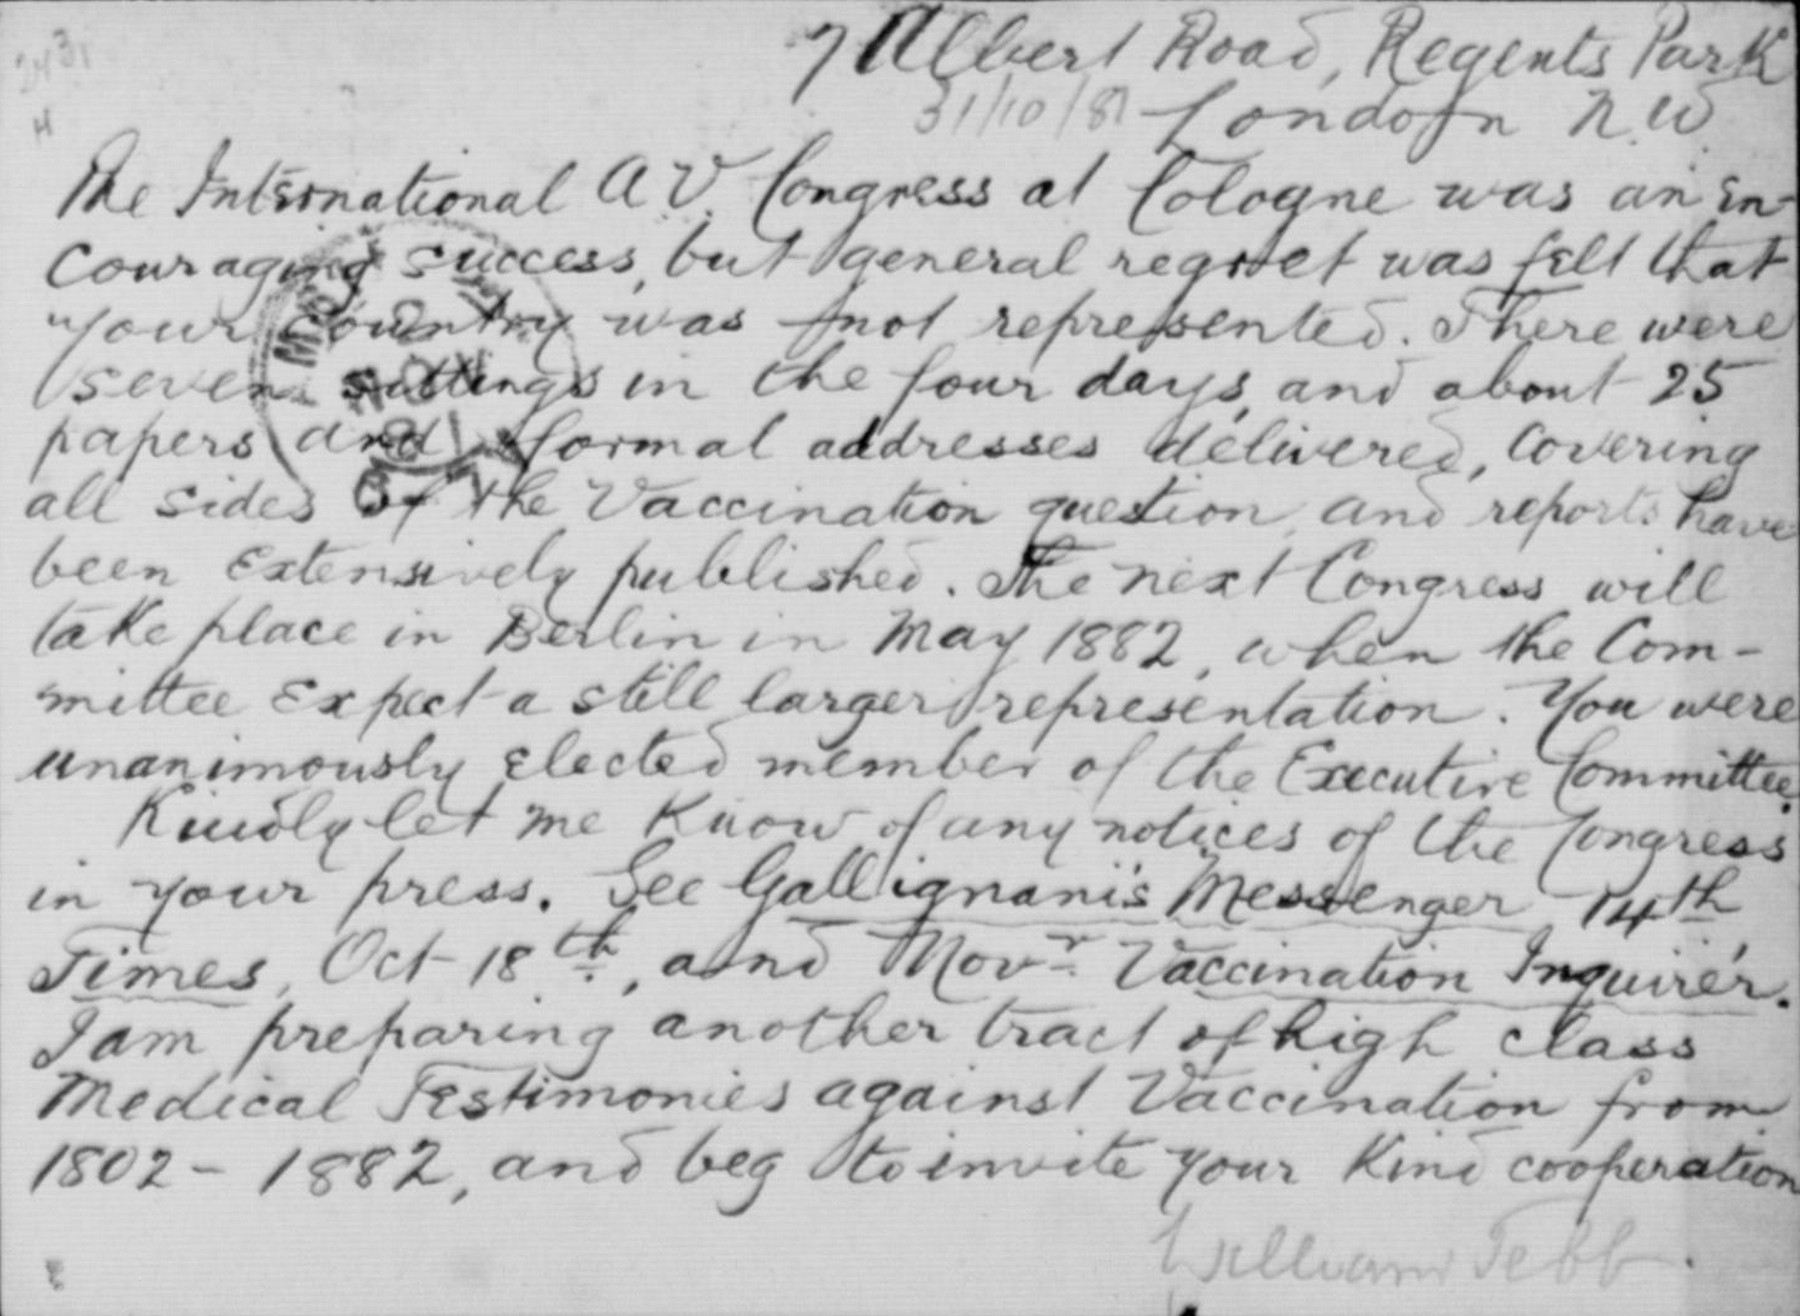 2431
H
7 Albert Road, Regents Park
31/10/81 London N.W
The International A.V. Congress at Cologne was an en-
couraging success, but general regret was felt that
your country was not represented. There were
seven sittings in the four days, and about 25
papers and formal addresses delivered, covering
all sides of the Vaccination question, and reports have
been extensively published. The next Congress will
take place in Berlin in May 1882, when the Com-
mittee expect a still larger representation. You were
unanimously elected member of the Executive Committee.
Kindly let me know of any notices of the Congress
in your press. See Gallignani's Messenger 14th,
Times, Oct 18th, and Novr Vaccination Inquirer.
I am preparing another tract of high class
Medical Testimonies against Vaccination from
1802 - 1882, and beg to invite your kind cooperation
William Tebb.